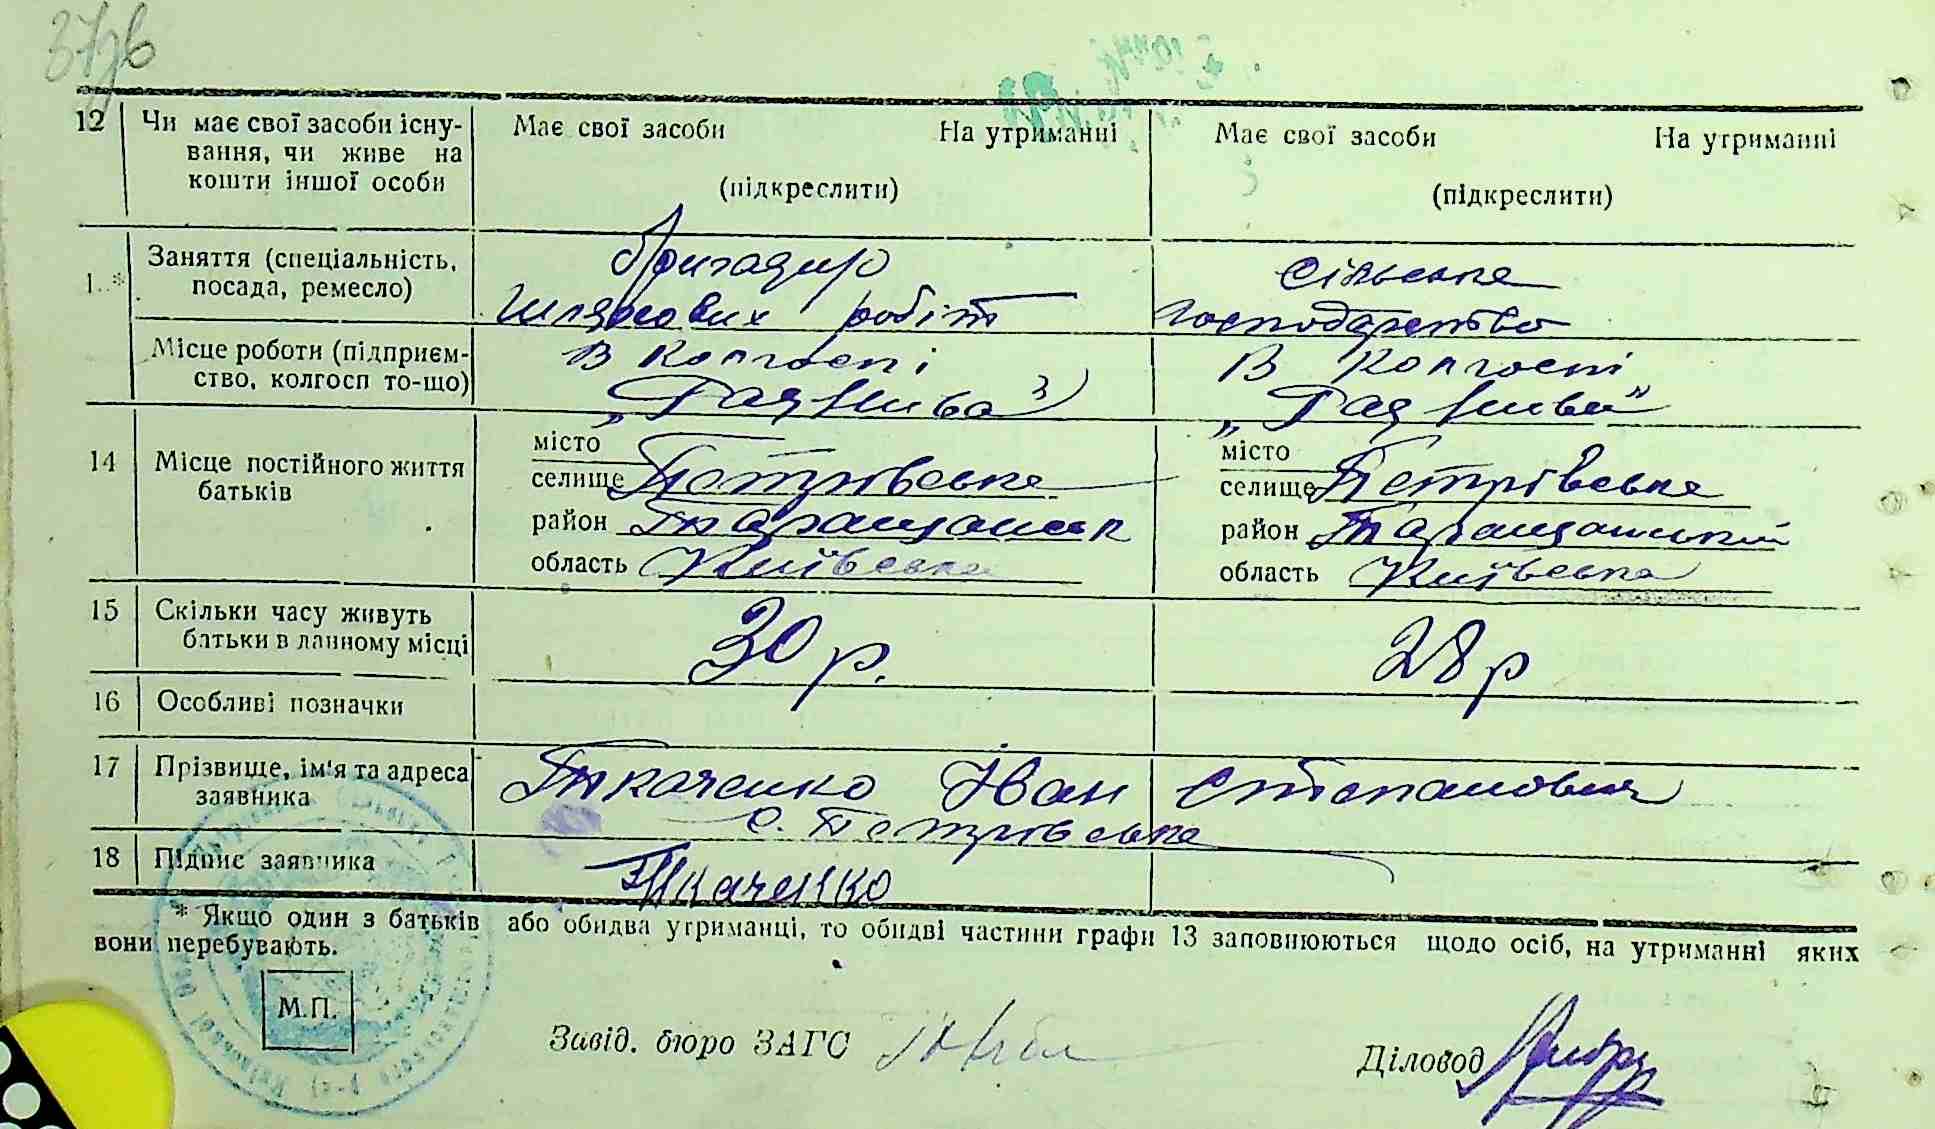 37зв
12 Чи має свої засоби існу- Має свої засоби На утриманні Має свої засоби На утриманні
вання, чи живе на
кошти іншої особи (підкреслити) (підкреслити)
Заняття (спеціальність, Бригадир Сільське
посада, ремесло) шляхових робіт господарство
Місце роботи (підприєм- В колгоспі В колгоспі
ство, колгосп то-що)
14 Місце постійного життя місто місто
батьків селище Петрівське селище Петрівське
район Таращанськ район Таращанський
область Київська область Київська
15 Скільки часу живуть 30 р. 28 р
батьки в данному місці
16 Особливі позначки
17 Прізвище, ім'я та адреса Ткаченко Іван Степанович
заявника с. Петрівське
18 Підпис заявника Ткаченко
* Якщо один з батьків або обидва утриманці, то обидві частини графи 13 заповнюються щодо осіб, на утриманні яких
вони перебувають.
М.П.
Завід. бюро ЗАГС Діловод